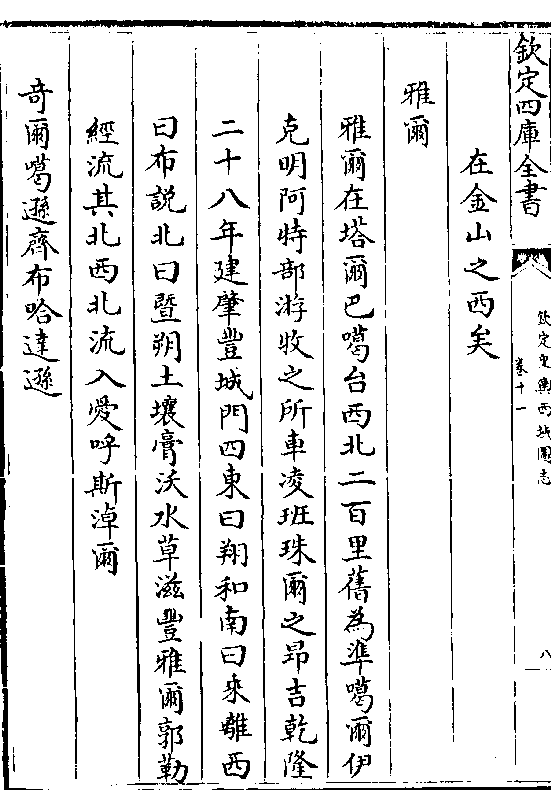 欽定四庫全書
欽定皇輿西域圖志
卷十一
八
在金山之西矣
雅爾
雅爾在塔爾巴噶台西北二百里舊為準噶爾伊
克明阿特部游牧之所車凌班珠爾之昂吉乾隆
二十八年建肇豐城門四東曰翔和南曰来離西
曰布說北曰暨朔土壤膏沃水草滋豐雅爾郭勒
經流其北西北流入愛呼斯淖爾
奇爾噶遜齊布哈達遜